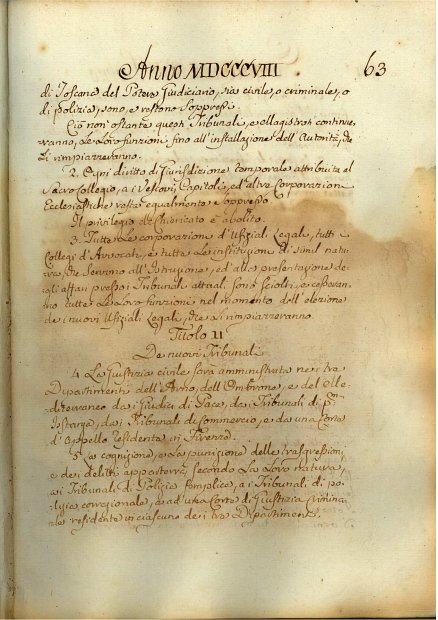 Anno MDCCCVIII 63
di Toscana del Potere Giudiciario, sia civile, o criminale, o
di polizia, sono, e restano soppressi.
Ciò non ostante questi Tribunali, e Magistrati continue-
ranno le loro funzioni fino all'installazione dell'Autorità, che
li rimpiazzeranno.
2. Ogni diritto di Giurisdizione temporale attribuita al
Sacro Collegio, a i Vescovi, Capitoli, ed altre Corporazioni
Ecclesiastiche resta egualmente soppresso
Il privilegio di Chiericato è abolito.
3. Tutte le corporazioni d'Ufiziali Legali, tutti i
Collegi d'Avvocati, e tutte le instituzioni di simil natu-
ra, che servono all'Istruzione, ed alla presentazione de-
gli affari presso i Tribunali attuali sono sciolti, e cesseran-
no tutte le loro funzioni nel momento dell'elezione
de i nuovi Ufiziali Legali, che li rimpiazzeranno.
Titolo II
De nuovi Tribunali
4. La Giustizia civile sarà amministrata ne i tre
Dipartimenti dell'Arno, dell'Ombrone, e del Me-
diterraneo da i Giudici di Pace, da i Tribunali di P.ma
Istanza, da i Tribunali di Commercio, e da una Corte
d'Appello residente in Firenze.
5. La cognizione, e la punizione delle trasgressioni,
e dei delitti apparterrà secondo la loro natura,
a i Tribunali di Polizia semplice, a i Tribunali di po-
lizia correzionale, e ad una Corte di Giustizia crimina-
le residente in ciascuno de i tre Dipartimenti.